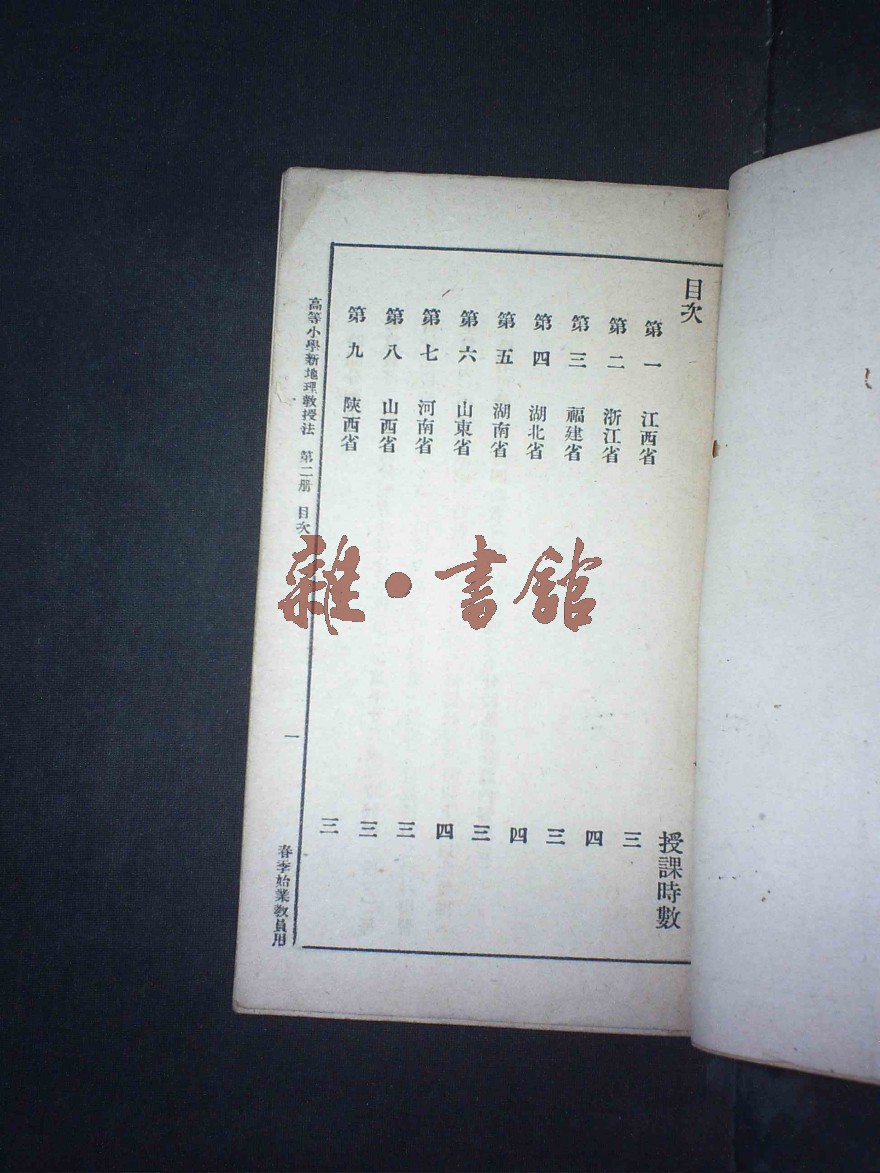 目次 授課時數
第一 江西省 三
第二 浙江省 四
第三 福建省 三
第四 湖北省 四
第五 湖南省 三
第六 山東省 四
第七 河南省 三
第八 山西省 三
第九 陝西省 三
高等小學新地理教授法 第二册 目次 一 春季始業教員用
雜·書館